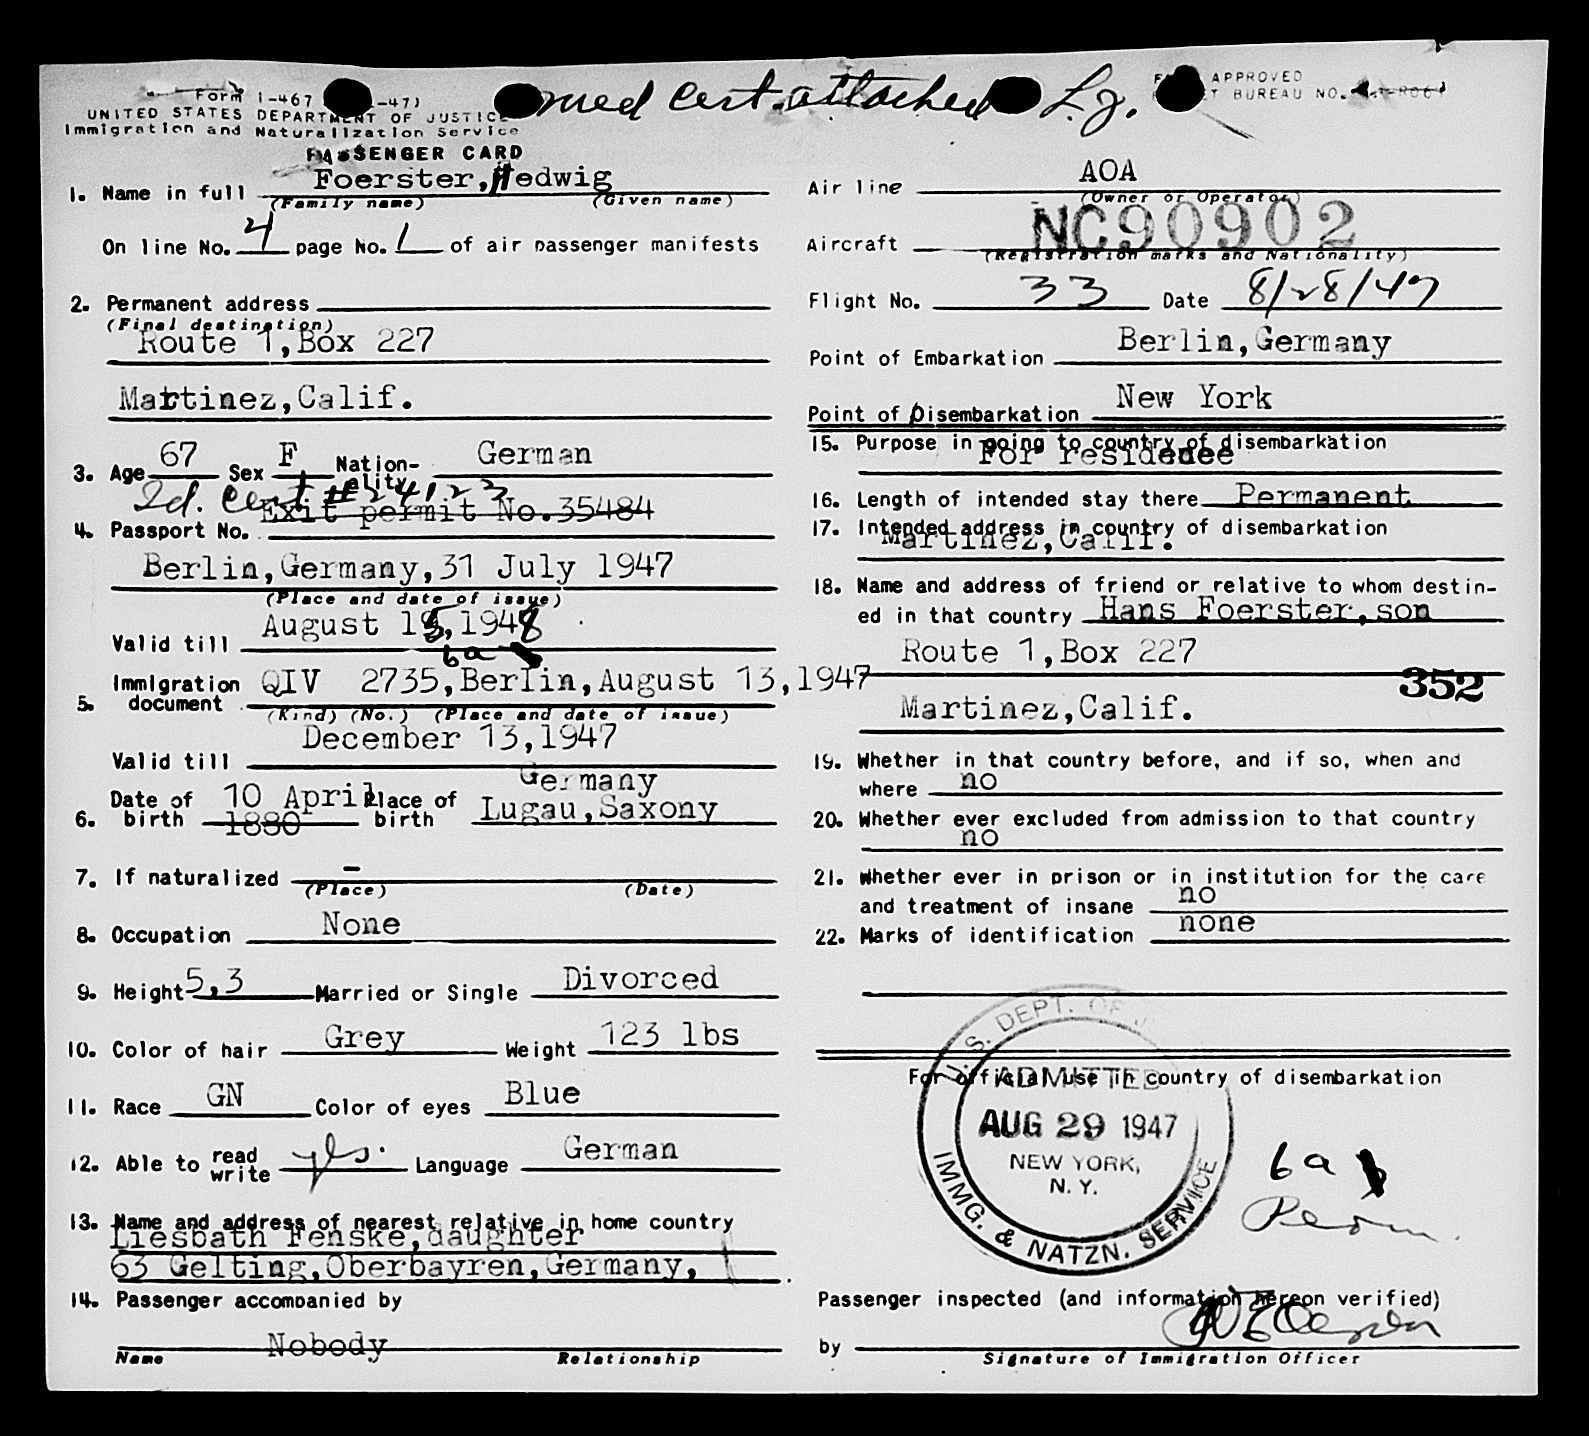 Form I-467
-47)
UNITED STATES DEPARTMENT OF JUSTICE
Immigration and Naturalization Service
med cert. attached
APPROVED
BUREAU NO.
PASSENGER CARD
1. Name in full Foerster, Hedwig
(Family name) (Given name)
On line No. 4 page No. 1 of air passenger manifests
2. Permanent address
(Final destination)
Route 1, Box 227
Martinez, Calif.
3. Age 67 Sex F Nation-ality German
Id. Cert # 24123
4. Passport No. Exit permit No. 35484
Berlin, Germany, 31 July 1947
(Place and date of issue)
Valid till August 15, 1948
5. Immigration document QIV 2735, Berlin, August 13, 1947
(Kind) (No.) (Place and date of issue)
Valid till December 13, 1947
6. Date of birth 10 April 1880 Place of birth Germany Lugau, Saxony
7. If naturalized -
(Place) (Date)
8. Occupation None
9. Height 5,3 Married or Single Divorced
10. Color of hair Grey Weight 123 lbs
11. Race GN Color of eyes Blue
12. Able to read write yes. Language German
13. Name and address of nearest relative in home country
Liesbath Fenske, daughter
63 Gelting, Oberbayren, Germany,
14. Passenger accompanied by
Nobody
Name Relationship
Air line AOA
(Owner or Operator)
Aircraft NC90902
(Registration marks and Nationality)
Flight No. 33 Date 8/28/47
Point of Embarkation Berlin, Germany
Point of Disembarkation New York
15. Purpose in going to country of disembarkation
For residence
16. Length of intended stay there Permanent
17. Intended address in country of disembarkation
Martinez, Calif.
18. Name and address of friend or relative to whom destin-
ed in that country Hans Foerster, son
Route 1, Box 227
352
Martinez, Calif.
19. Whether in that country before, and if so, when and
where no
20. Whether ever excluded from admission to that country
no
21. Whether ever in prison or in institution for the care
and treatment of insane no
22. Marks of identification none
For official use in country of disembarkation
U. S. DEPT. OF
ADMITTED
AUG 29 1947
NEW YORK,
N. Y.
IMMG. & NATZN. SERVICE
6a
Passenger inspected (and information hereon verified)
by
Signature of Immigration Officer